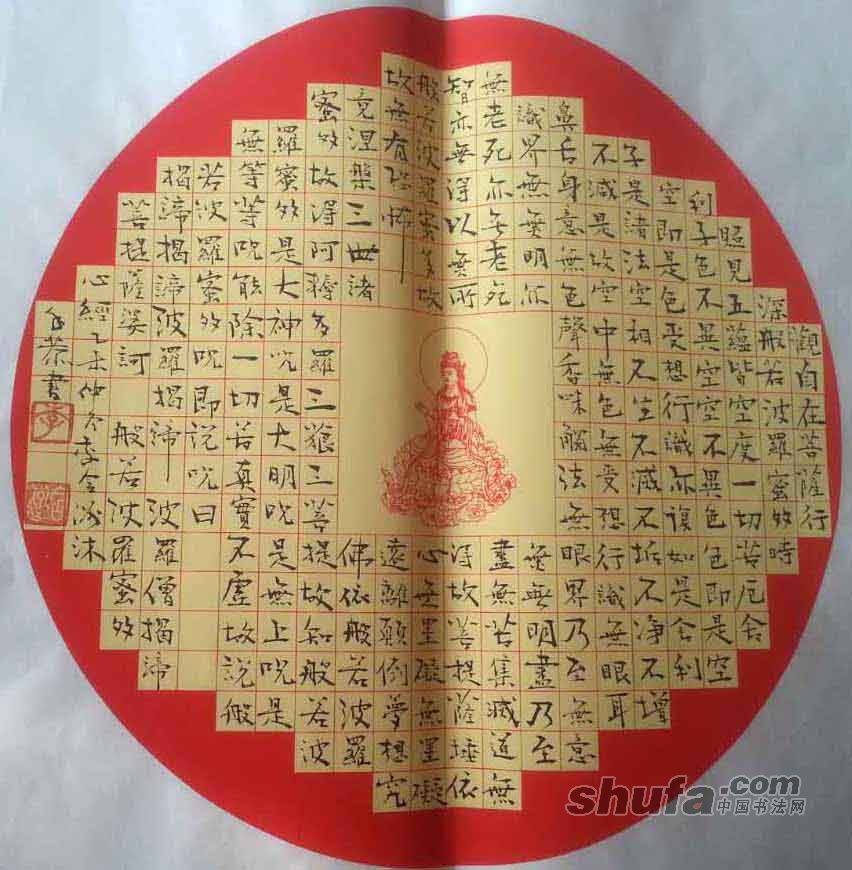 觀自在菩薩行
深般若波羅蜜多時
照見五蘊皆空度一切苦厄舍
利子色不異空空不異色色即是空
空即是色受想行識亦復如是舍利
子是諸法空相不生不滅不垢不淨不增
不減是故空中無色無受想行識無眼耳
鼻舌身意無色聲香味觸法無眼界乃至無意
識界無無明亦無無明盡乃至
無老死亦無老死盡無苦集滅道無
智亦無得以無所得故菩提薩埵依
般若波羅蜜多故心無罣礙無罣礙
故無有恐怖遠離顛倒夢想究
竟涅槃三世諸佛依般若波羅
蜜多故得阿耨多羅三藐三菩提故知般若波
羅蜜多是大神呪是大明呪是無上呪是
無等等呪能除一切苦真實不虛故說般
若波羅蜜多呪即說呪曰
揭諦揭諦波羅揭諦 波羅僧揭諦
菩提薩婆訶 般若波羅蜜多
心經乙未仲冬李金海沐
手恭書
shufa.com
中国书法网